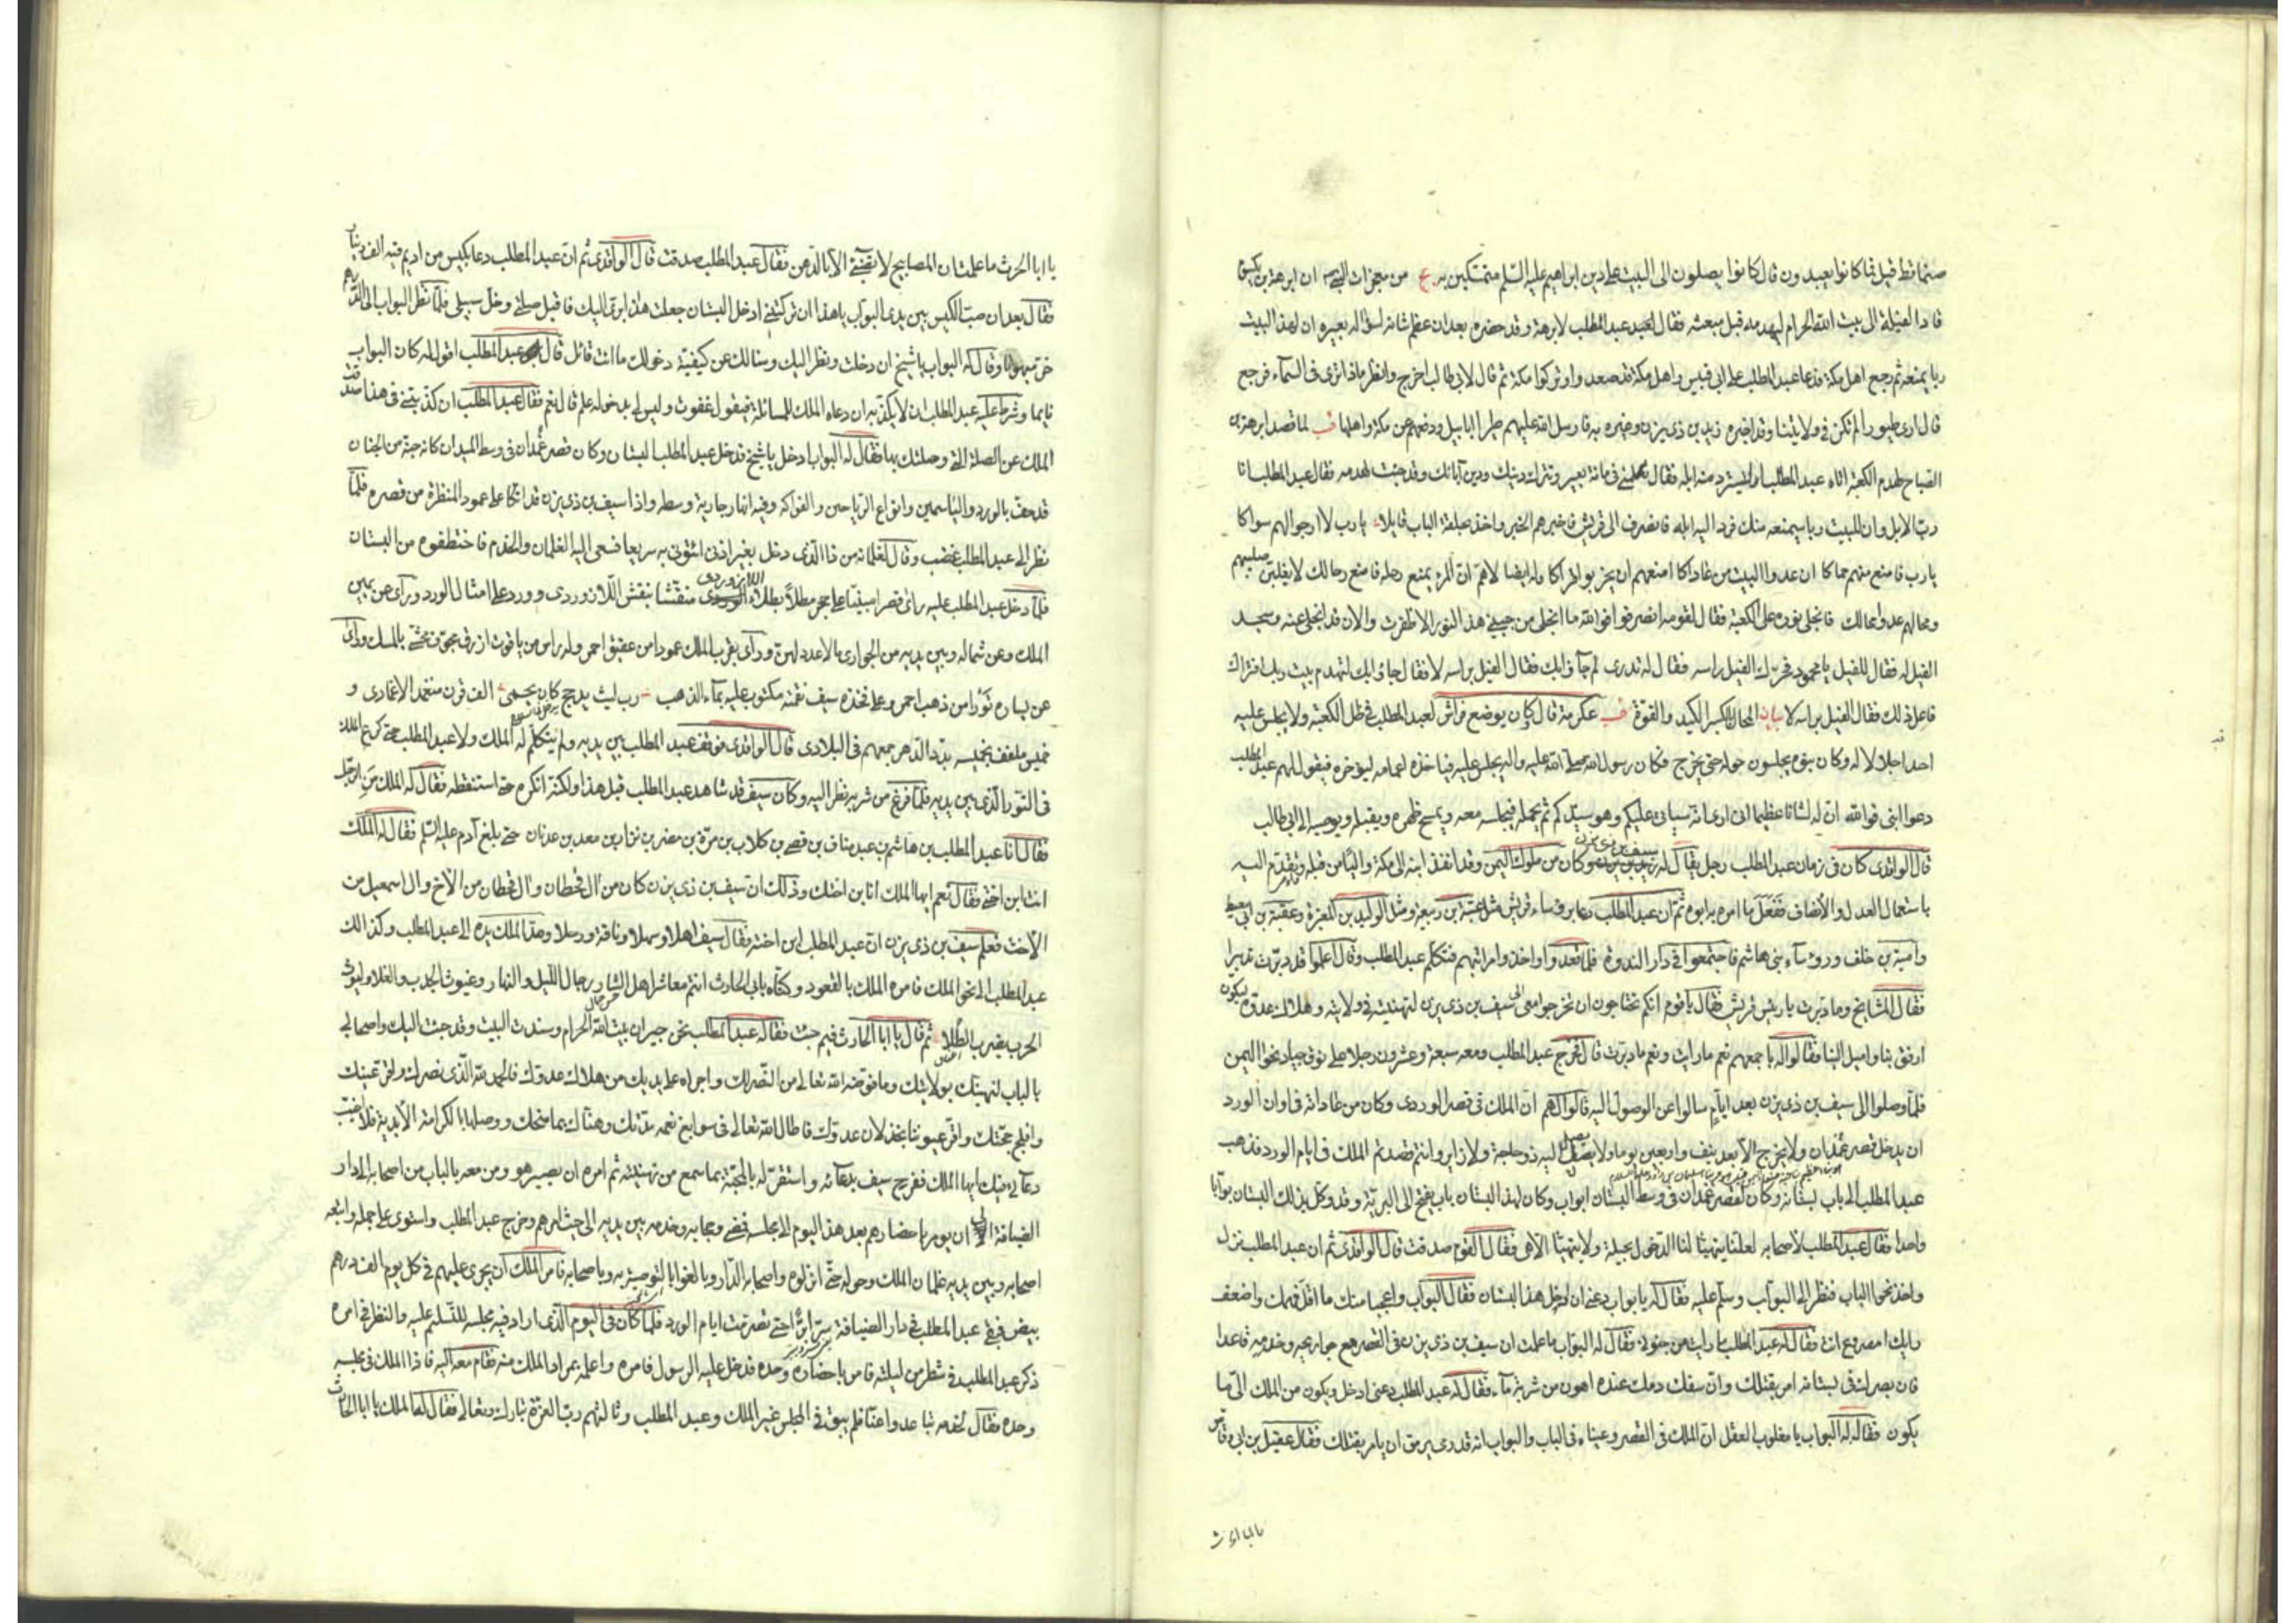 صنما قط قيل فما كانوا يعبدون قال كانوا يصلون الى البيت على دين ابراهيم عليه السلم متمسكين به يج من معجزات النبي ان ابرهة بن يكسوم
قاد الفيلة الى بيت الله الحرام ليهدمه قبل مبعثه فقال لعبد عبد المطلب لابرهة وقد حضره بعد ان عظم شانه لسؤاله بعيره ان لهذا البيت
ربا يمنعه ثم رجع اهل مكة فدعا عبد المطلب على ابي قبيس واهل مكة قد صعدوا وتركوا مكة ثم قال لابي طالب اخرج وانظر ماذا ترى في السماء فرجع
قال ارى طيورا لم تكن في ولايتنا وقد اخبره بن ذي يزن وغيره به فارسل الله عليهم طيرا ابابيل ودفعهم عن مكة واهلها قب لما قصد ابرهة بن
الصباح لهدم الكعبة اتاه عبد المطلب ليسترد منه ابله فقال تكلمني في مائة بعير وتترك دينك ودين آبائك وقد جئت لهدمه فقال عبد المطلب انا
رب الابل وان للبيت ربا سيمنعه منك فرد اليه ابله فانصرف الى قريش فاخبرهم الخبر واخذ بحلقة الباب قايلا يا رب لا ارجو لهم سواكا
يا رب فامنع منهم حماكا ان عدو البيت من عاداكا امنعهم ان يخربوا قراكا وله ايضا لاهم ان المرء يمنع رحله فامنع رحالك لا يغلبن صليبهم
ومحالهم عدوا محالك فانجلى نوره على الكعبة فقال لقومه انصرفوا فوالله ما انجلى من جبيني هذا النور الا ظفرت والان قد انجلى عنه وسجد
الفيل له فقال للفيل يا محمود فحرك الفيل راسه فقال له تدري لم جاؤا بك فقال الفيل براسه لا فقال جاؤا بك لتهدم بيت ربك افتراك
فاعل ذلك فقال الفيل براسه لا بيان المحال بكسر الكيد والقوة قب عكرمة قال كان يوضع فراش لعبد المطلب في ظل الكعبة ولا يجلس عليه
احد اجلالا له وكان بنوه يجلسون حوله حتى يخرج فكان رسول الله صلى الله عليه واله يجلس عليه فياخذه اعمامه ليؤخره فيقول لهم عبد المطلب
دعوا ابني فوالله ان له لشانا عظيما اني ارى انه سياتي عليكم وهو سيدكم ثم يحمله فيجلسه معه ويمسح ظهره ويقبله ويوصيه الى ابي طالب
قال الواقدي كان في زمان عبد المطلب رجل يقال له سيف بن ذي يزن وكان من ملوك اليمن وقد انفذ ابنه الى مكة واليا من قبله وتقدم اليه
باستعمال العدل والانصاف ففعل ما امره به ابوه ثم ان عبد المطلب دعا برؤساء قريش مثل عتبة بن ربيعة ومثل الوليد بن المغيرة وعقبة بن ابي معيط
وامية بن خلف ورؤساء بني هاشم فاجتمعوا في دار الندوة فلما قعدوا واخذوا مراتبهم فتكلم عبد المطلب وقال اعلموا قد دبرت تدبيرا
فقال المشايخ وما دبرت يا رئيس قريش فقال يا قوم انكم تحتاجون ان تخرجوا معي الى سيف بن ذي يزن لتهنيته في ولايته وهلاك عدوه ليكون
ارفق بنا واميل الينا فقالوا له باجمعهم نعم ما رايت ونعم ما دبرت قال فخرج عبد المطلب ومعه سبعة وعشرون رجلا على نوق جياد نحو اليمن
فلما وصلوا الى سيف بن ذي يزن بعد ايام سالوا عن الوصول اليه قالوا لهم ان الملك في قصر الوردي وكان من عاداته في اوان الورد
ان يدخل قصر غمدان ولا يخرج الا بعد نيف واربعين يوما ولا يصل اليه ذو حاجة ولا زاير وانتم قصدتم الملك في ايام الورد فذهب
عبد المطلب الى باب بستانه وكان لقصر غمدان في وسط البستان ابواب وكان لهذا البستان باب يفتح الى البرية وقد وكل بذلك البستان بوابا
واحدا فقال عبد المطلب لاصحابه لعلنا يتهيا لنا الدخول بحيلة ولا يتهيا الا هي فقال القوم صدقت قال الواقدي ثم ان عبد المطلب نزل
واخذ نحو الباب فنظر الى البواب وسلم عليه فقال له يا بواب دعني ان ادخل هذا البستان فقال البواب واعجبا منك ما اقل فهمك واضعف
رايك امصروع انت فقال له عبد المطلب ما رايت من جنوني فقال له البواب ما علمت ان سيف بن ذي يزن في القصر مع جواريه وخدمه قاعدا
فان بصر بك في بستانه امر بقتلك وان سفك دمك عنده اهون من شربة ماء فقال له عبد المطلب دعني ادخل ويكون من الملك الي ما
يكون فقال له البواب يا مغلوب العقل ان الملك في القصر وعيناه في الباب والبواب انه قدر ان يامر بقتلك فقال عقيل بن ابي وقاص
يا ابا الحرث ما علمت ان المصابيح لا تضيء الا بالدهن فقال عبد المطلب صدقت قال الواقدي ثم ان عبد المطلب دعا بكيس من اديم فيه الف دينار
فقال بعد ان صب الكيس بين يدي البواب يا هذا ان تركتني ادخل البستان جعلت هذا بري اليك فاقبل صلتي وخل سبيلي فلما نظر البواب الى الدراهم
خر مبهوتا وقال له البواب يا شيخ ان دخلت ونظر اليك وسالك عن كيفية دخولك ما انت قائل قال عبد المطلب اقول له كان البواب
نايما وشرط عليه عبد المطلب ان لا يكذبه ان دعاه الملك للمسائلة فيقول غفوت وليس لي بدخوله علم قال نعم فقال عبد المطلب ان كذبتني في هذا صدقت
الملك عن الصلة التي وصلتك بها فقال له البواب ادخل يا شيخ فدخل عبد المطلب البستان وكان قصر غمدان في وسط الميدان كانه جنة من الجنان
قد حف بالورد والياسمين وانواع الرياحين والفواكه وفيه انهار جارية وسطه واذا سيف بن ذي يزن قد اتكا على عمود المنظرة من قصره فلما
نظر الى عبد المطلب غضب وقال لغلمانه من ذا الذي دخل بغير اذني ائتوني به سريعا فسعى اليه الغلمان والخدم فاختطفوه من البستان
فلما دخل عبد المطلب عليه راى قصرا مبنيا على حجر مطلا بطلاء الوردي منقشا بنقش اللازوردي وورد على امثال الورد وراى عن يمين
الملك وعن شماله وبين يديه من الجواري ما لا عدد لهن وراى بقرب الملك عمودا من عقيق احمر وله راس من ياقوت ازرق مجوف محشي بالمسك وراى
عن يساره تورا من ذهب احمر وعلى فخذه سيف نقمته مكتوب عليه بماء الذهب رب ليث مدجج كان يحمي الف قرن منغمد الاغماد و
خميس ملفف بخميس بدد الدهر جمعهم في البلاد قال الواقدي فوقف عبد المطلب بين يديه ولم يتكلم له الملك ولا عبد المطلب حتى كرع الملك
في التور الذي بين يديه فلما فرغ من شربه نظر اليه وكان سيف قد شاهد عبد المطلب قبل هذا ولكنه انكره حتى استنطقه فقال له الملك من الرجل
فقال انا عبد المطلب بن هاشم بن عبد مناف بن قصي بن كلاب بن مرة بن مضر بن نزار بن معد بن عدنان حتى بلغ آدم عليه السلم فقال له الملك
انت ابن اختي فقال نعم ايها الملك انا ابن اختك وذلك ان سيف بن ذي يزن كان من ال قحطان وال قحطان من الاخ وال اسمعيل من
الاخت فعلم سيف بن ذي يزن ان عبد المطلب ابن اخته فقال سيف اهلا وسهلا وناقة ورحلا ومد الملك يده الى عبد المطلب وكذلك
عبد المطلب الى نحو الملك فامره الملك بالقعود وكناه بابي الحارث انتم معاشر اهل الشار رجال الليل والنهار وغيوث الجدب والغلاء وليوث
الحرب بضرب الطلا ثم قال يا ابا الحارث فيم جئت فقال له عبد المطلب نحن جيران بيت الله الحرام وسدنة البيت وقد جئت اليك واصحابي
بالباب لنهنئك بولايتك وما فوضه الله تعالى من النصر لك واجراه على يديك من هلاك عدوك فالحمد لله الذي نصرك واقر عينيك
وافلج حجتك واقر عيوننا بخذلان عدوك فاطال الله تعالى في سوابغ نعمه مدتك وهناك بما منحك ووصلها بالكرامة الابدية فلا خيب
دعائي فيك ايها الملك ففرح سيف بدعائه واستقر له بالمحبة بما سمع من تهنيته ثم امره ان يصير هو ومن معه بالباب من اصحابه الى دار
الضيافة الى ان يؤمر باحضارهم بعد هذا اليوم الى مجلسه فمضى وحجابه وخدمه بين يديه الى حيث امرهم وخرج عبد المطلب واستوى على جمله واتبعه
اصحابه وبين يديه غلمان الملك وحوله حتى انزلوه واصحابه الدار وبالغوا بالتوصية به وباصحابه فامر الملك ان يجرى عليهم في كل يوم الف درهم
بيض فبقي عبد المطلب في دار الضيافة حتى تصرمت ايام الورد فلما كان في اليوم الذي اراد فيه مجلسه للتسليم عليه والنظر في امره
ذكر عبد المطلب في شطر من ليلته فامر باحضاره وحده فدخل عليه الرسول فامره واعلمه بمراد الملك منه فقام معه اليه فاذا الملك في مجلسه
وحده فقال لخدمه تباعدوا عنا فلم يبق في المجلس غير الملك وعبد المطلب وثالثهم رب العزة تبارك وتعالى فقال له الملك يا ابا الحارث